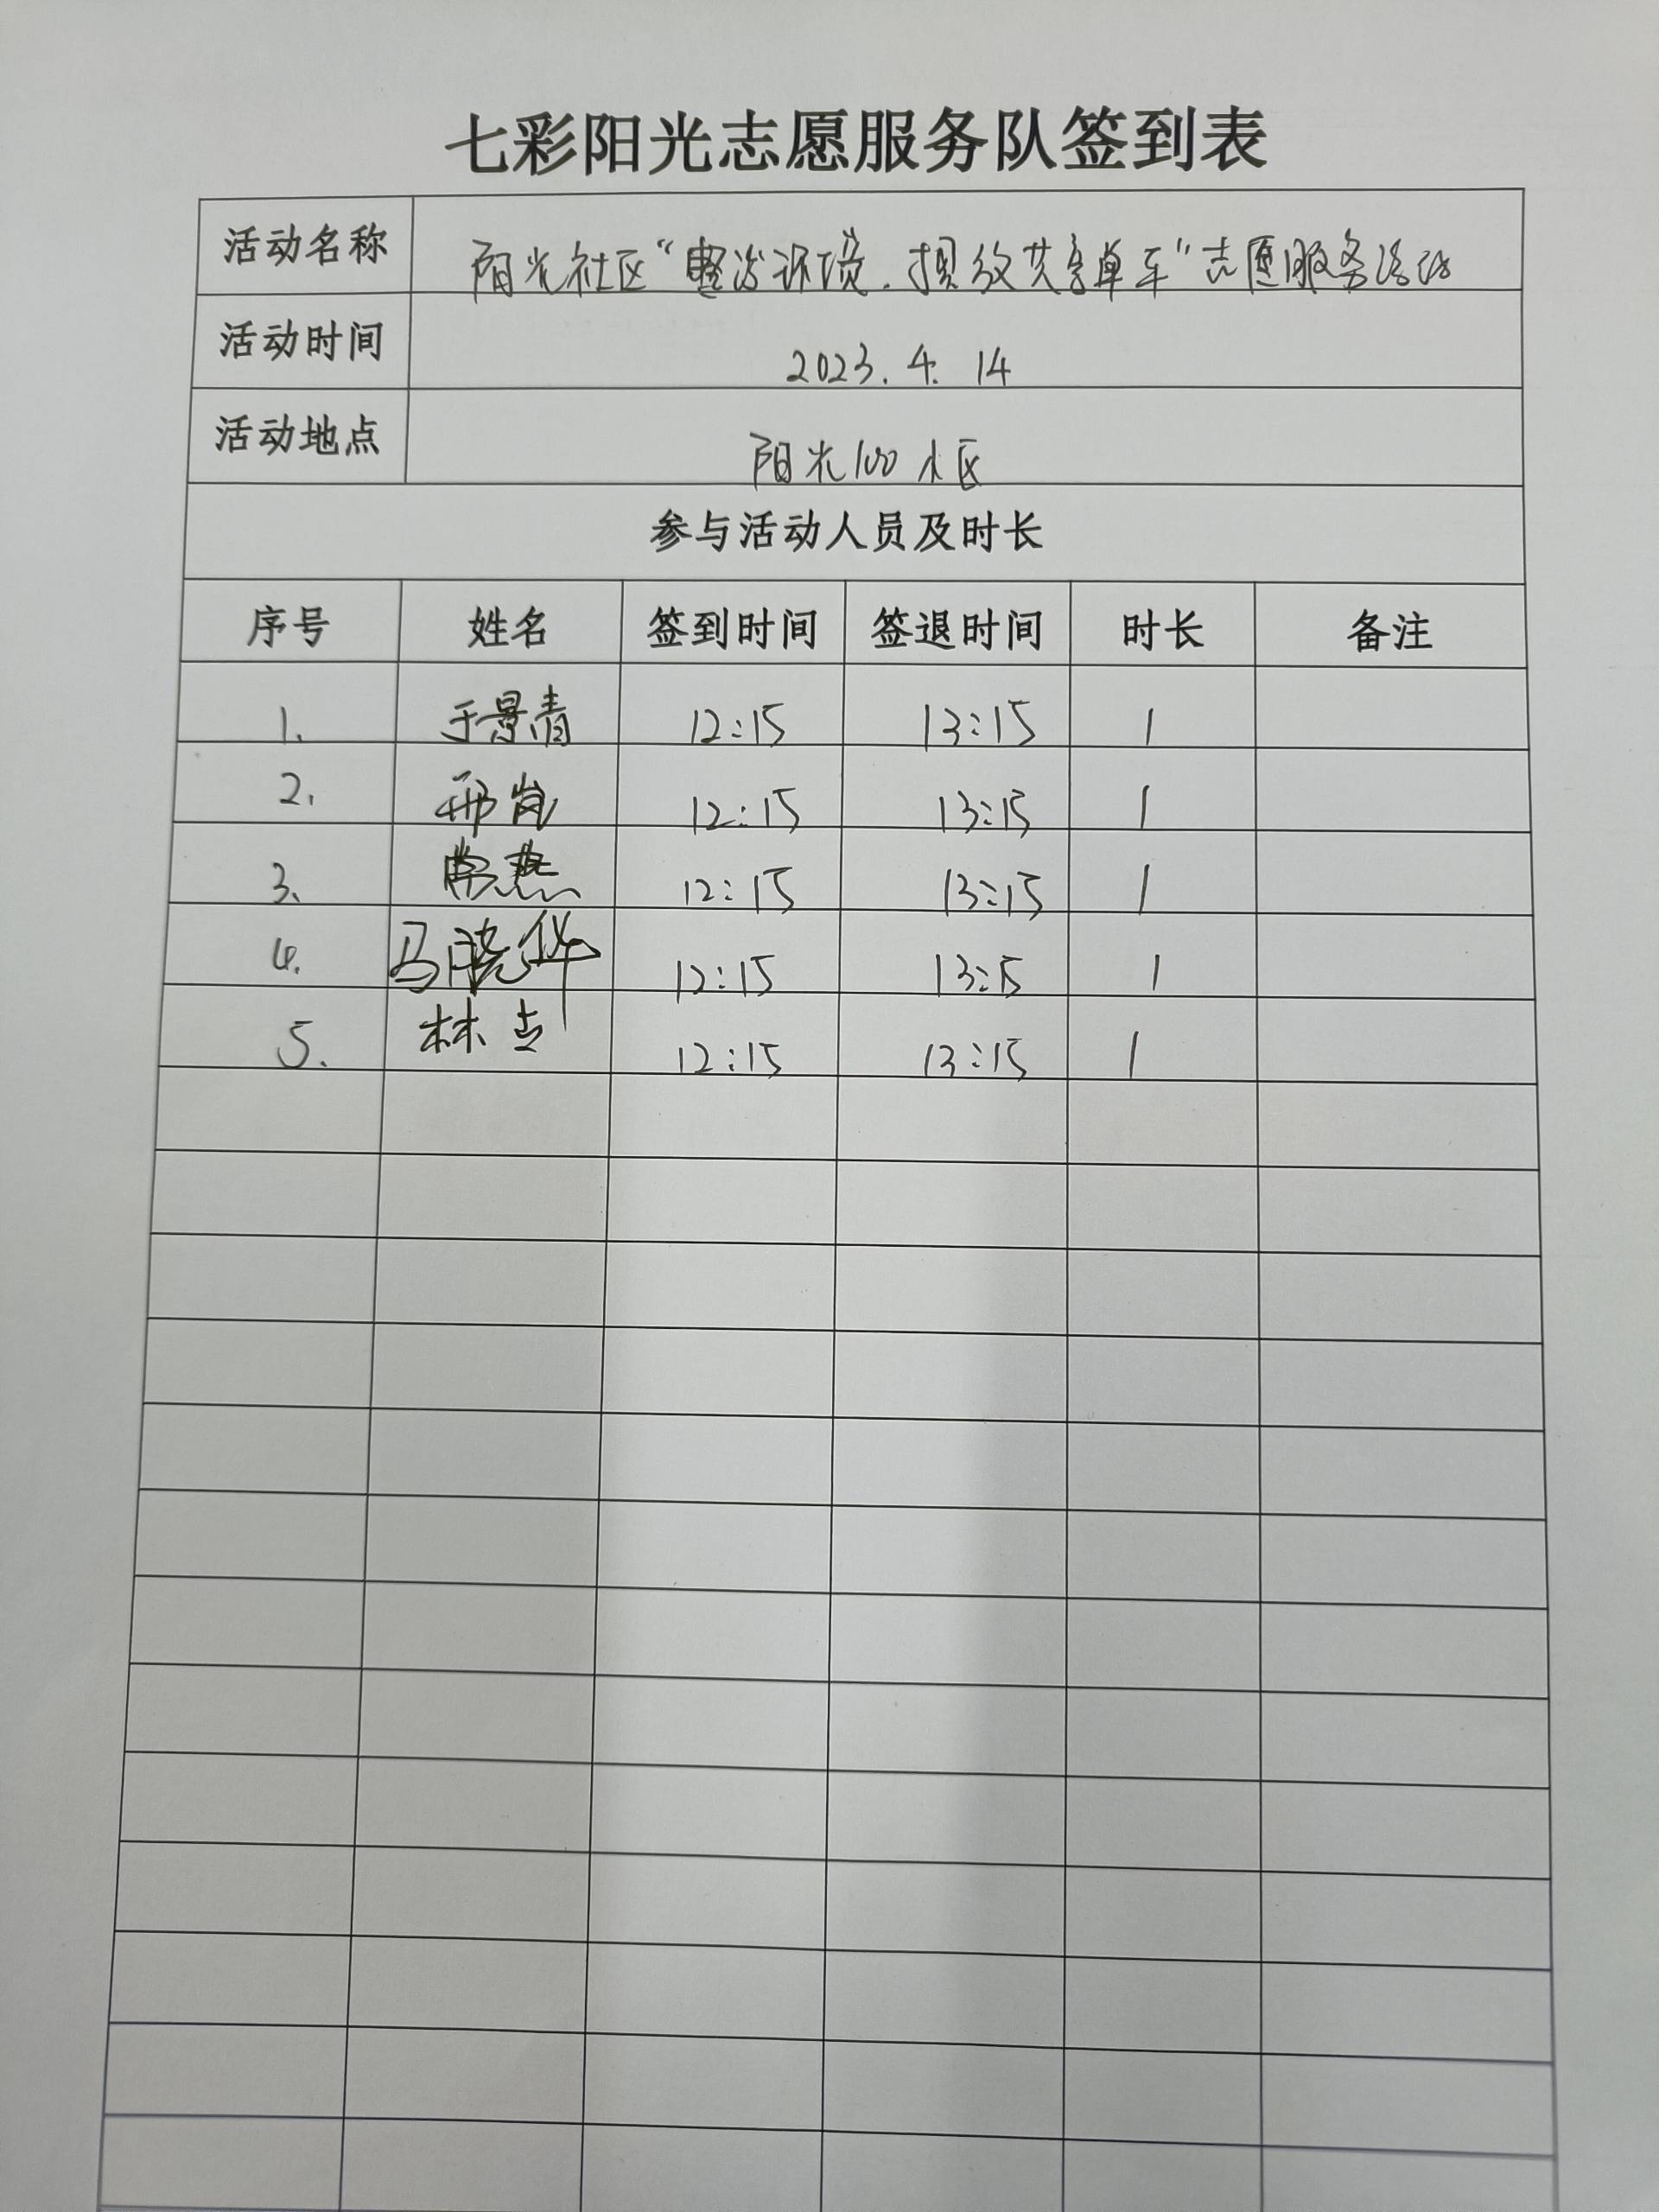 七彩阳光志愿服务队签到表
活动名称 阳光社区“整治环境.摆放共享单车”志愿服务活动
活动时间 2023.4.14
活动地点 阳光100小区
参与活动人员及时长
序号 姓名 签到时间 签退时间 时长 备注
1. 于景清 12:15 13:15 1
2. 邢岚 12:15 13:15 1
3. 常燕 12:15 13:15 1
4. 马晓华 12:15 13:15 1
5. 林 12:15 13:15 1